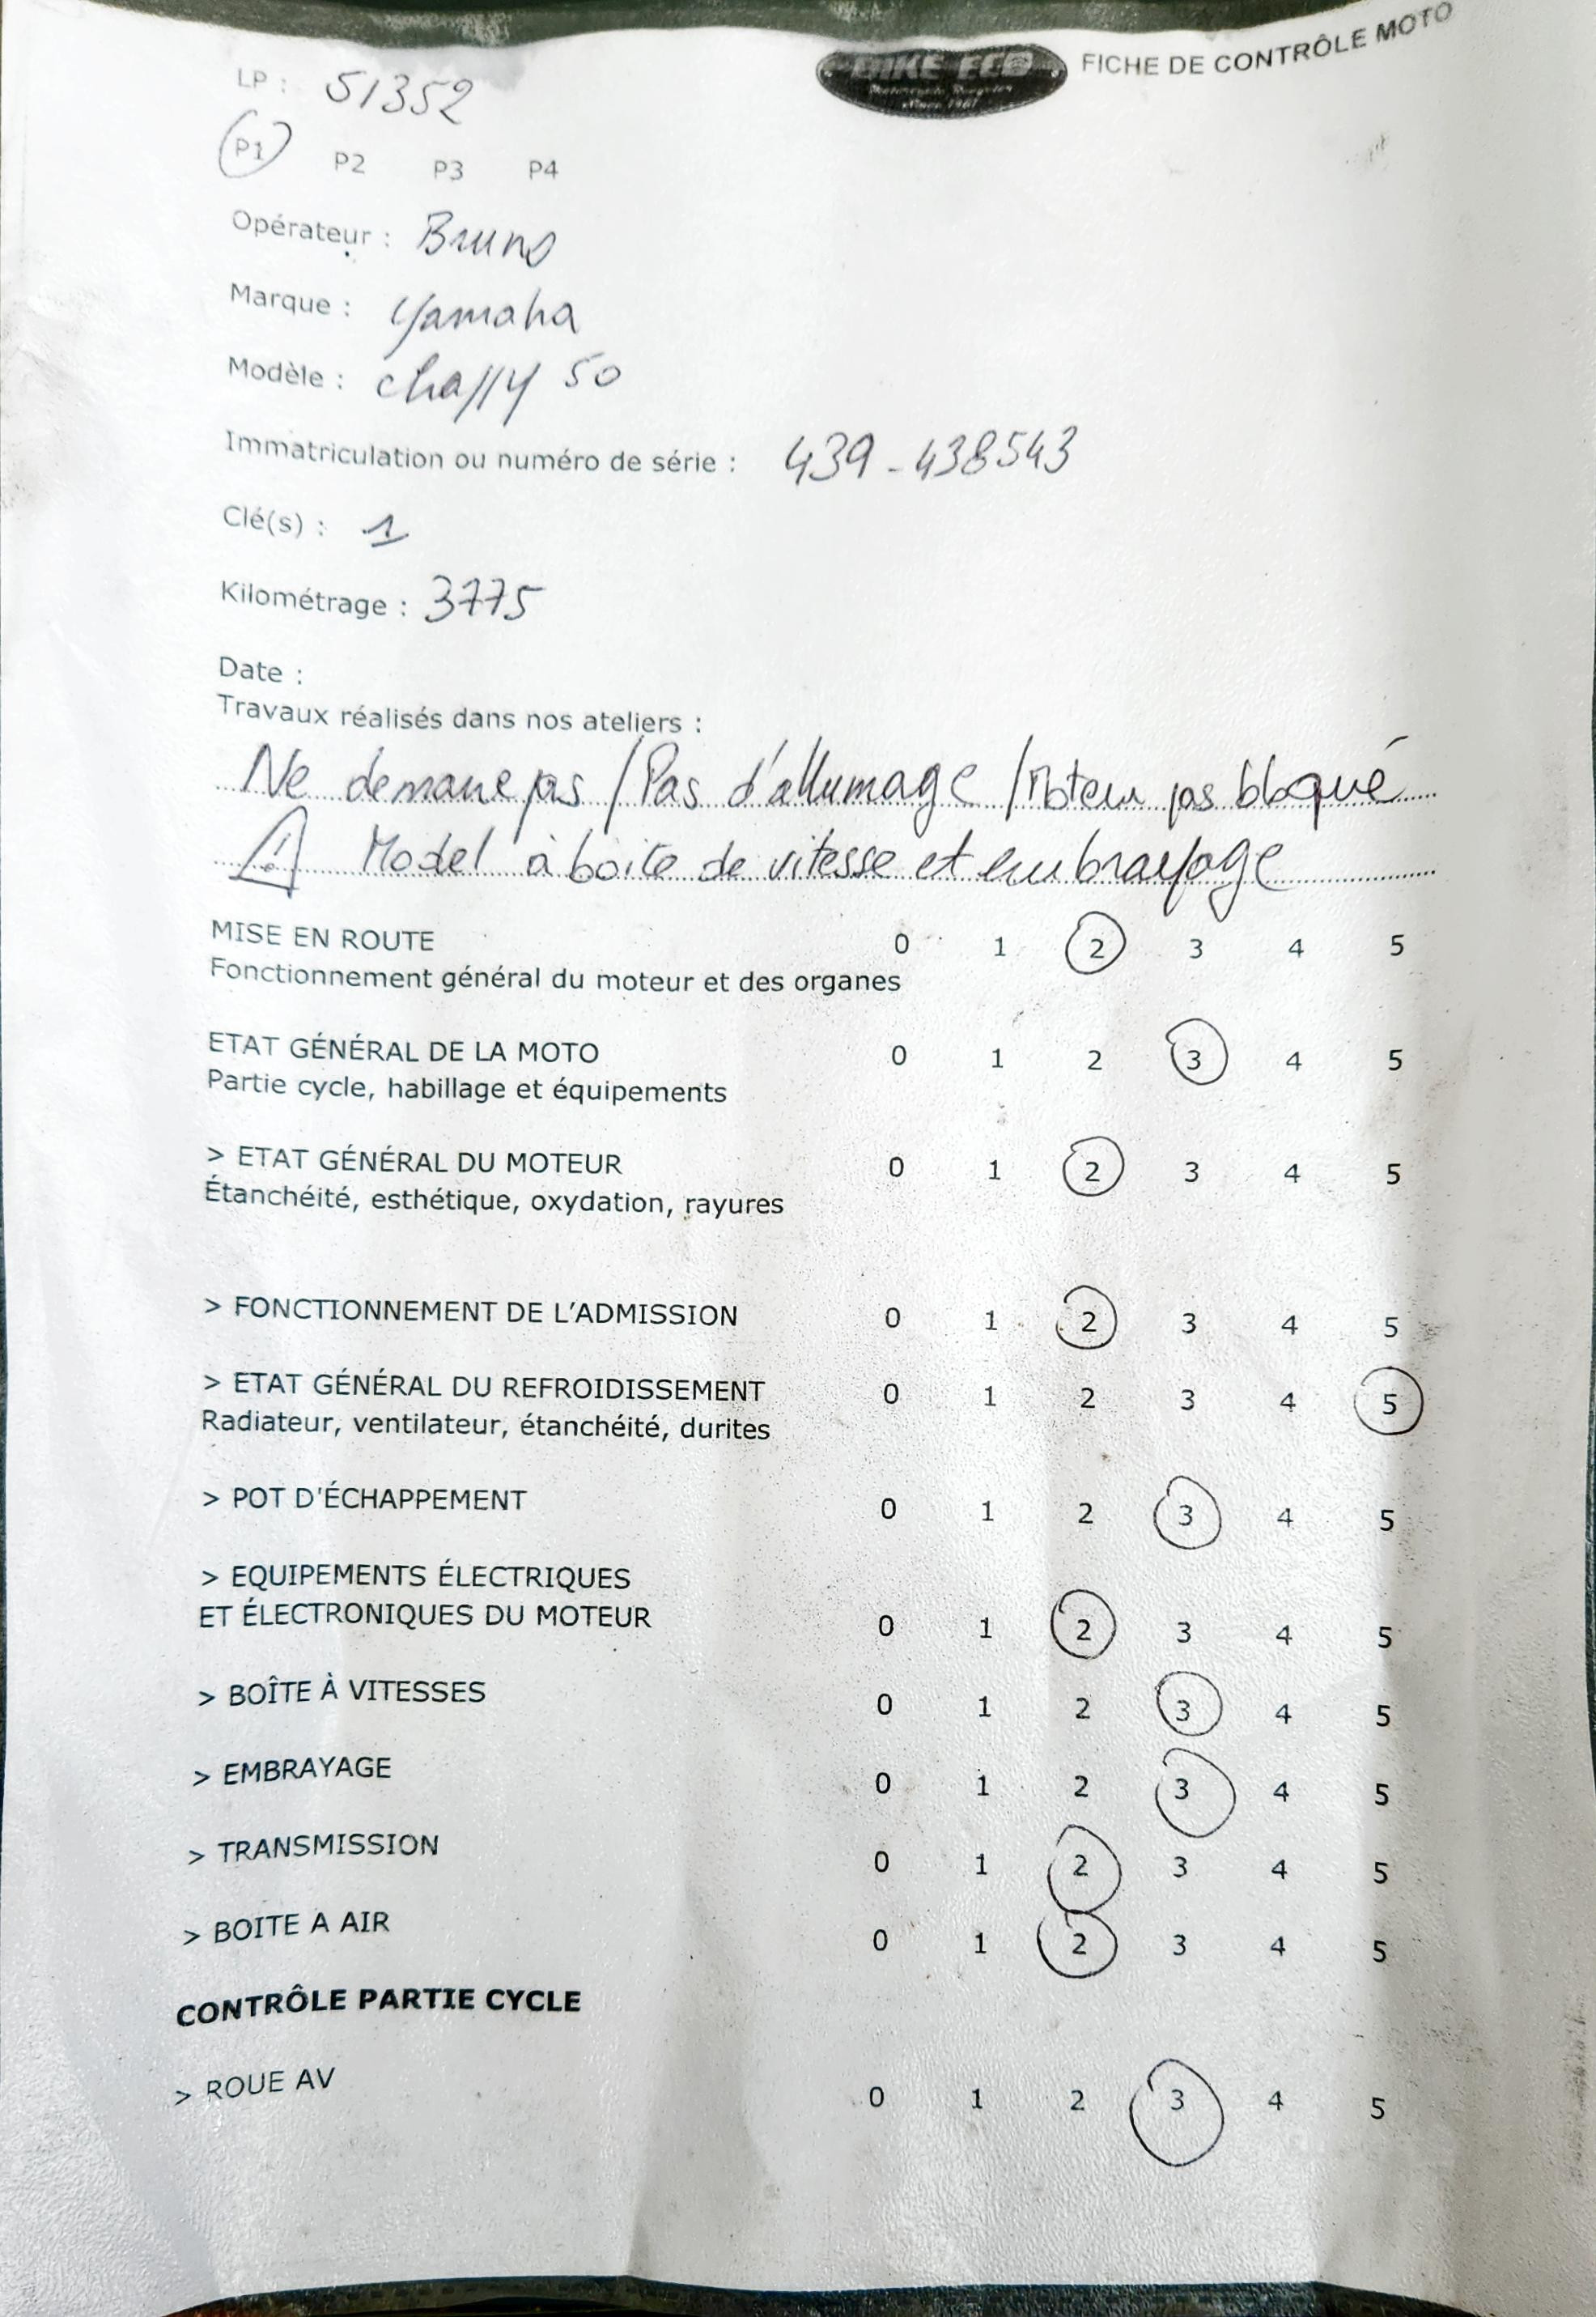 BIKE ECO FICHE DE CONTRÔLE MOTO
Motorcycle Recycler
since 1987
LP : 51352
P1 P2 P3 P4
Opérateur : Bruno
Marque : Yamaha
Modèle : chappy 50
Immatriculation ou numéro de série : 439-438543
Clé(s) : 1
Kilométrage : 3775
Date :
Travaux réalisés dans nos ateliers :
Ne demarre pas / Pas d'allumage / Moteur pas bloqué
! Model à boite de vitesse et embrayage
MISE EN ROUTE 0 1 2 3 4 5
Fonctionnement général du moteur et des organes
ETAT GÉNÉRAL DE LA MOTO 0 1 2 3 4 5
Partie cycle, habillage et équipements
> ETAT GÉNÉRAL DU MOTEUR 0 1 2 3 4 5
Étanchéité, esthétique, oxydation, rayures
> FONCTIONNEMENT DE L'ADMISSION 0 1 2 3 4 5
> ETAT GÉNÉRAL DU REFROIDISSEMENT 0 1 2 3 4 5
Radiateur, ventilateur, étanchéité, durites
> POT D'ÉCHAPPEMENT 0 1 2 3 4 5
> EQUIPEMENTS ÉLECTRIQUES
ET ÉLECTRONIQUES DU MOTEUR 0 1 2 3 4 5
> BOÎTE À VITESSES 0 1 2 3 4 5
> EMBRAYAGE 0 1 2 3 4 5
> TRANSMISSION 0 1 2 3 4 5
> BOITE A AIR 0 1 2 3 4 5
CONTRÔLE PARTIE CYCLE
> ROUE AV 0 1 2 3 4 5